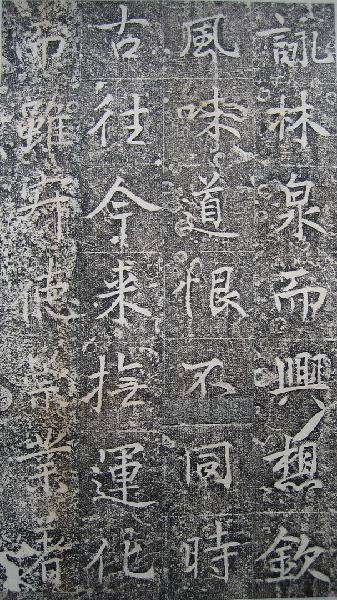 詠林泉而興想欽
風味道恨不同時
古往今来撫運化
而雖德業